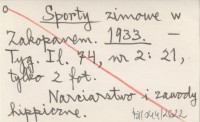 Sporty zimowe w
Zakopanem. 1933. –
Tyg. Il. 74, nr 2: 21,
tylko 2 fot.
Narciarstwo i zawody
hippiczne.